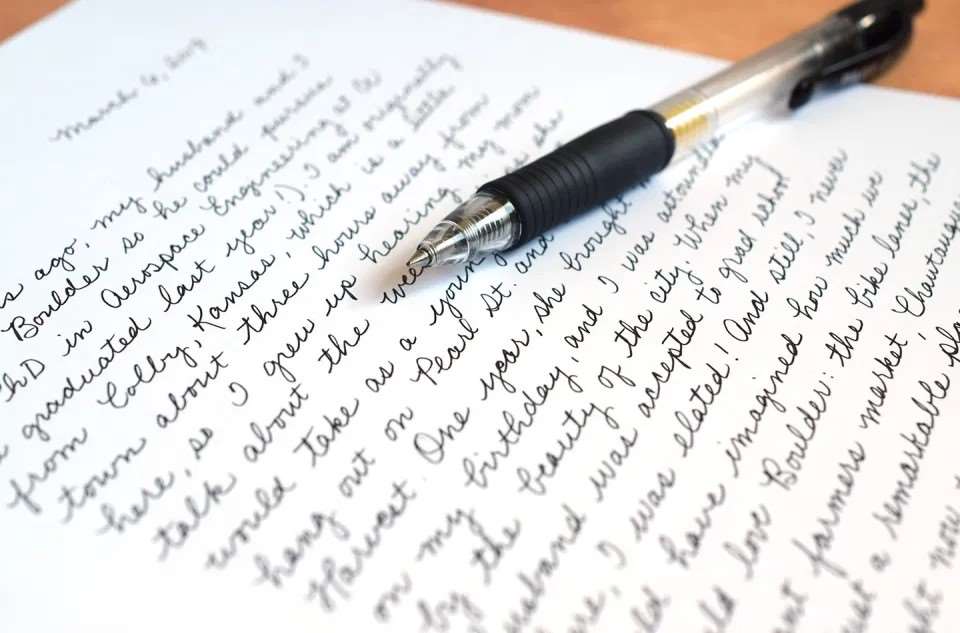 March 6,
s ago, my husband and I
Boulder so he could pursue
PhD in Aerospace Engineering at
graduated last year!). I am originally
from Colby, Kansas, which is a little
town about three hours away from
here, so I grew up hearing my mom
talk about the wee she
would take as a young
hang out on Pearl St. and
Harvest. One year, she brought
on my birthday, and I was astounde
by the beauty of the city. When my
usband was accepted to grad school
re, I was elated! And still, I never
ld have imagined how much we
ld love Boulder: the bike lanes, the
ant farmers market, Chautauq
ust a remarkable pla
ght now